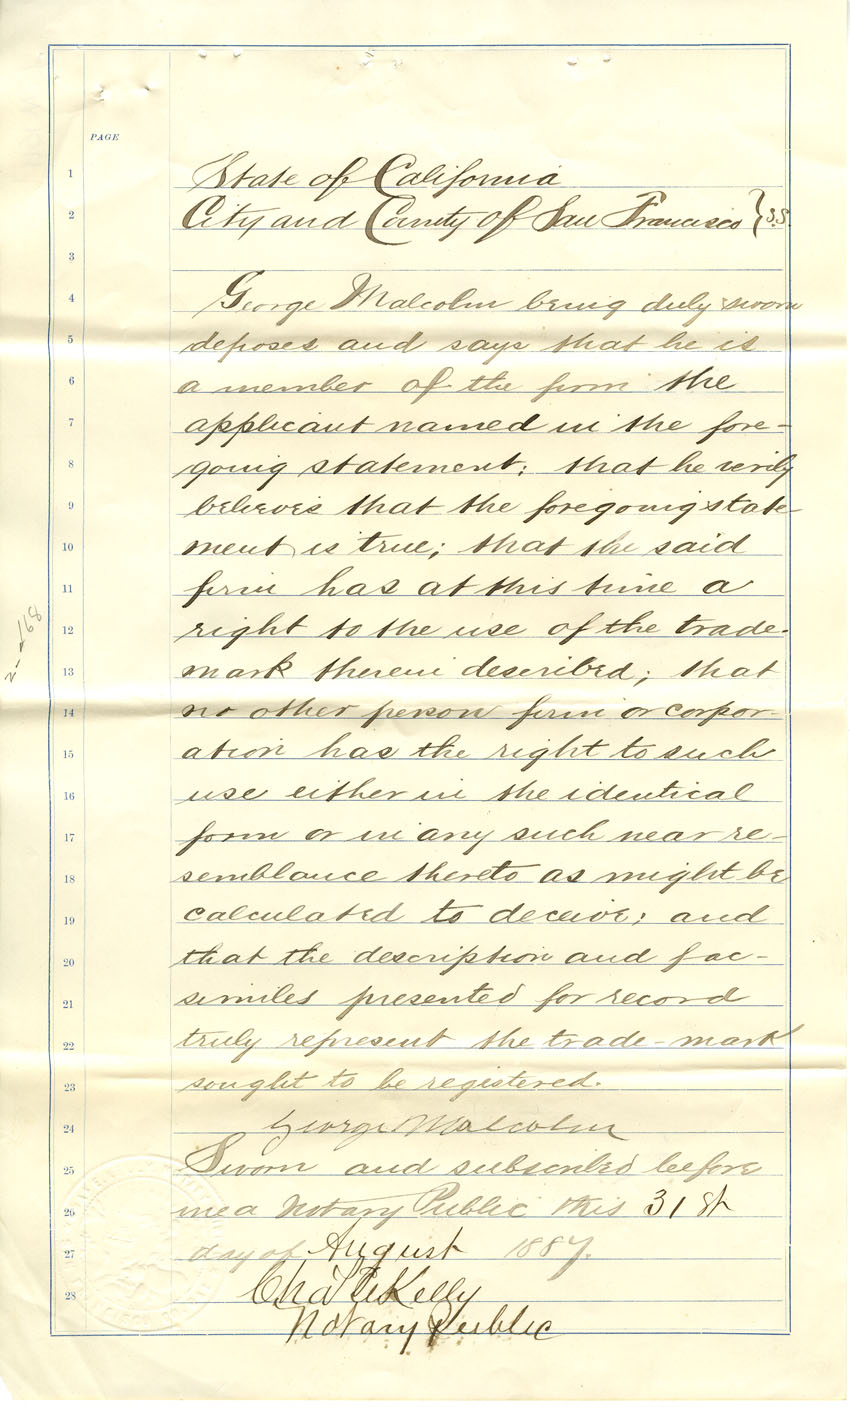 PAGE
1 State of California
2 City and County of San Francisco } S.S.
3
4 George Malcolm being duly sworn
5 deposes and says that he is
6 a member of the firm the
7 applicant named in the fore-
8 going statement; that he verily
9 believes that the foregoing state-
10 ment is true; that the said
11 firm has at this time a
12 right to the use of the trade-
13 mark therein described; that
14 no other person firm or corpor-
15 ation has the right to such
16 use either in the identical
17 form or in any such near re-
18 semblance thereto as might be
19 calculated to deceive; and
20 that the description and fac-
21 similes presented for record
22 truly represent the trade-mark
23 sought to be registered.
24 George Malcolm
25 Sworn and subscribed before
26 me a Notary Public this 31st
27 day of August 1887.
28 Kelly
Notary Public